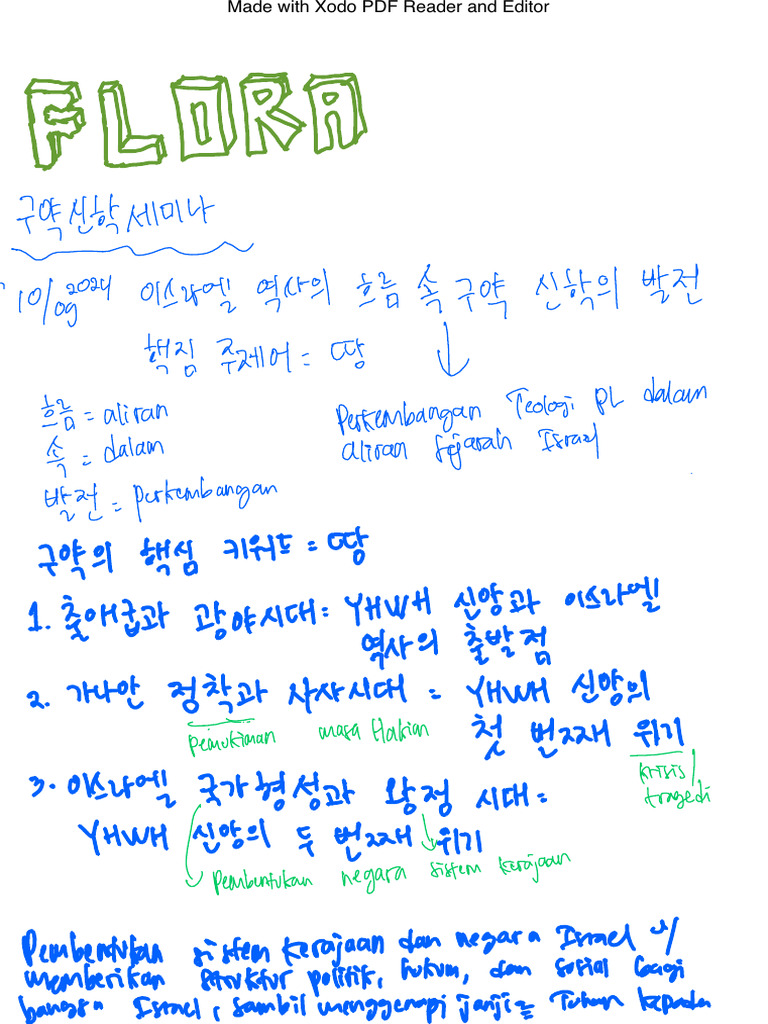 Made with Xodo PDF Reader and Editor
FLORA
구약신학세미나
10/09 2024 이스라엘 역사의 흐름 속 구약 신학의 발전
핵심 주제어 = 땅
흐름 = aliran
속 = dalam
발전 = perkembangan
Perkembangan Teologi PL dalam
aliran sejarah Israel
구약의 핵심 키워드 = 땅
1. 출애굽과 광야시대: YHWH 신앙과 이스라엘
역사의 출발점
2. 가나안 정착과 사사시대 = YHWH 신앙의
첫 번째 위기
pemukiman masa Hakim
krisis/
tragedi
3. 이스라엘 국가형성과 왕정 시대=
YHWH 신앙의 두 번째 위기
Pembentukan negara sistem kerajaan
Pembentukan sistem kerajaan dan negara Israel u/
memberikan struktur politik, hukum, dan sosial bagi
bangsa Israel, sambil menggenapi janji= Tuhan kepada